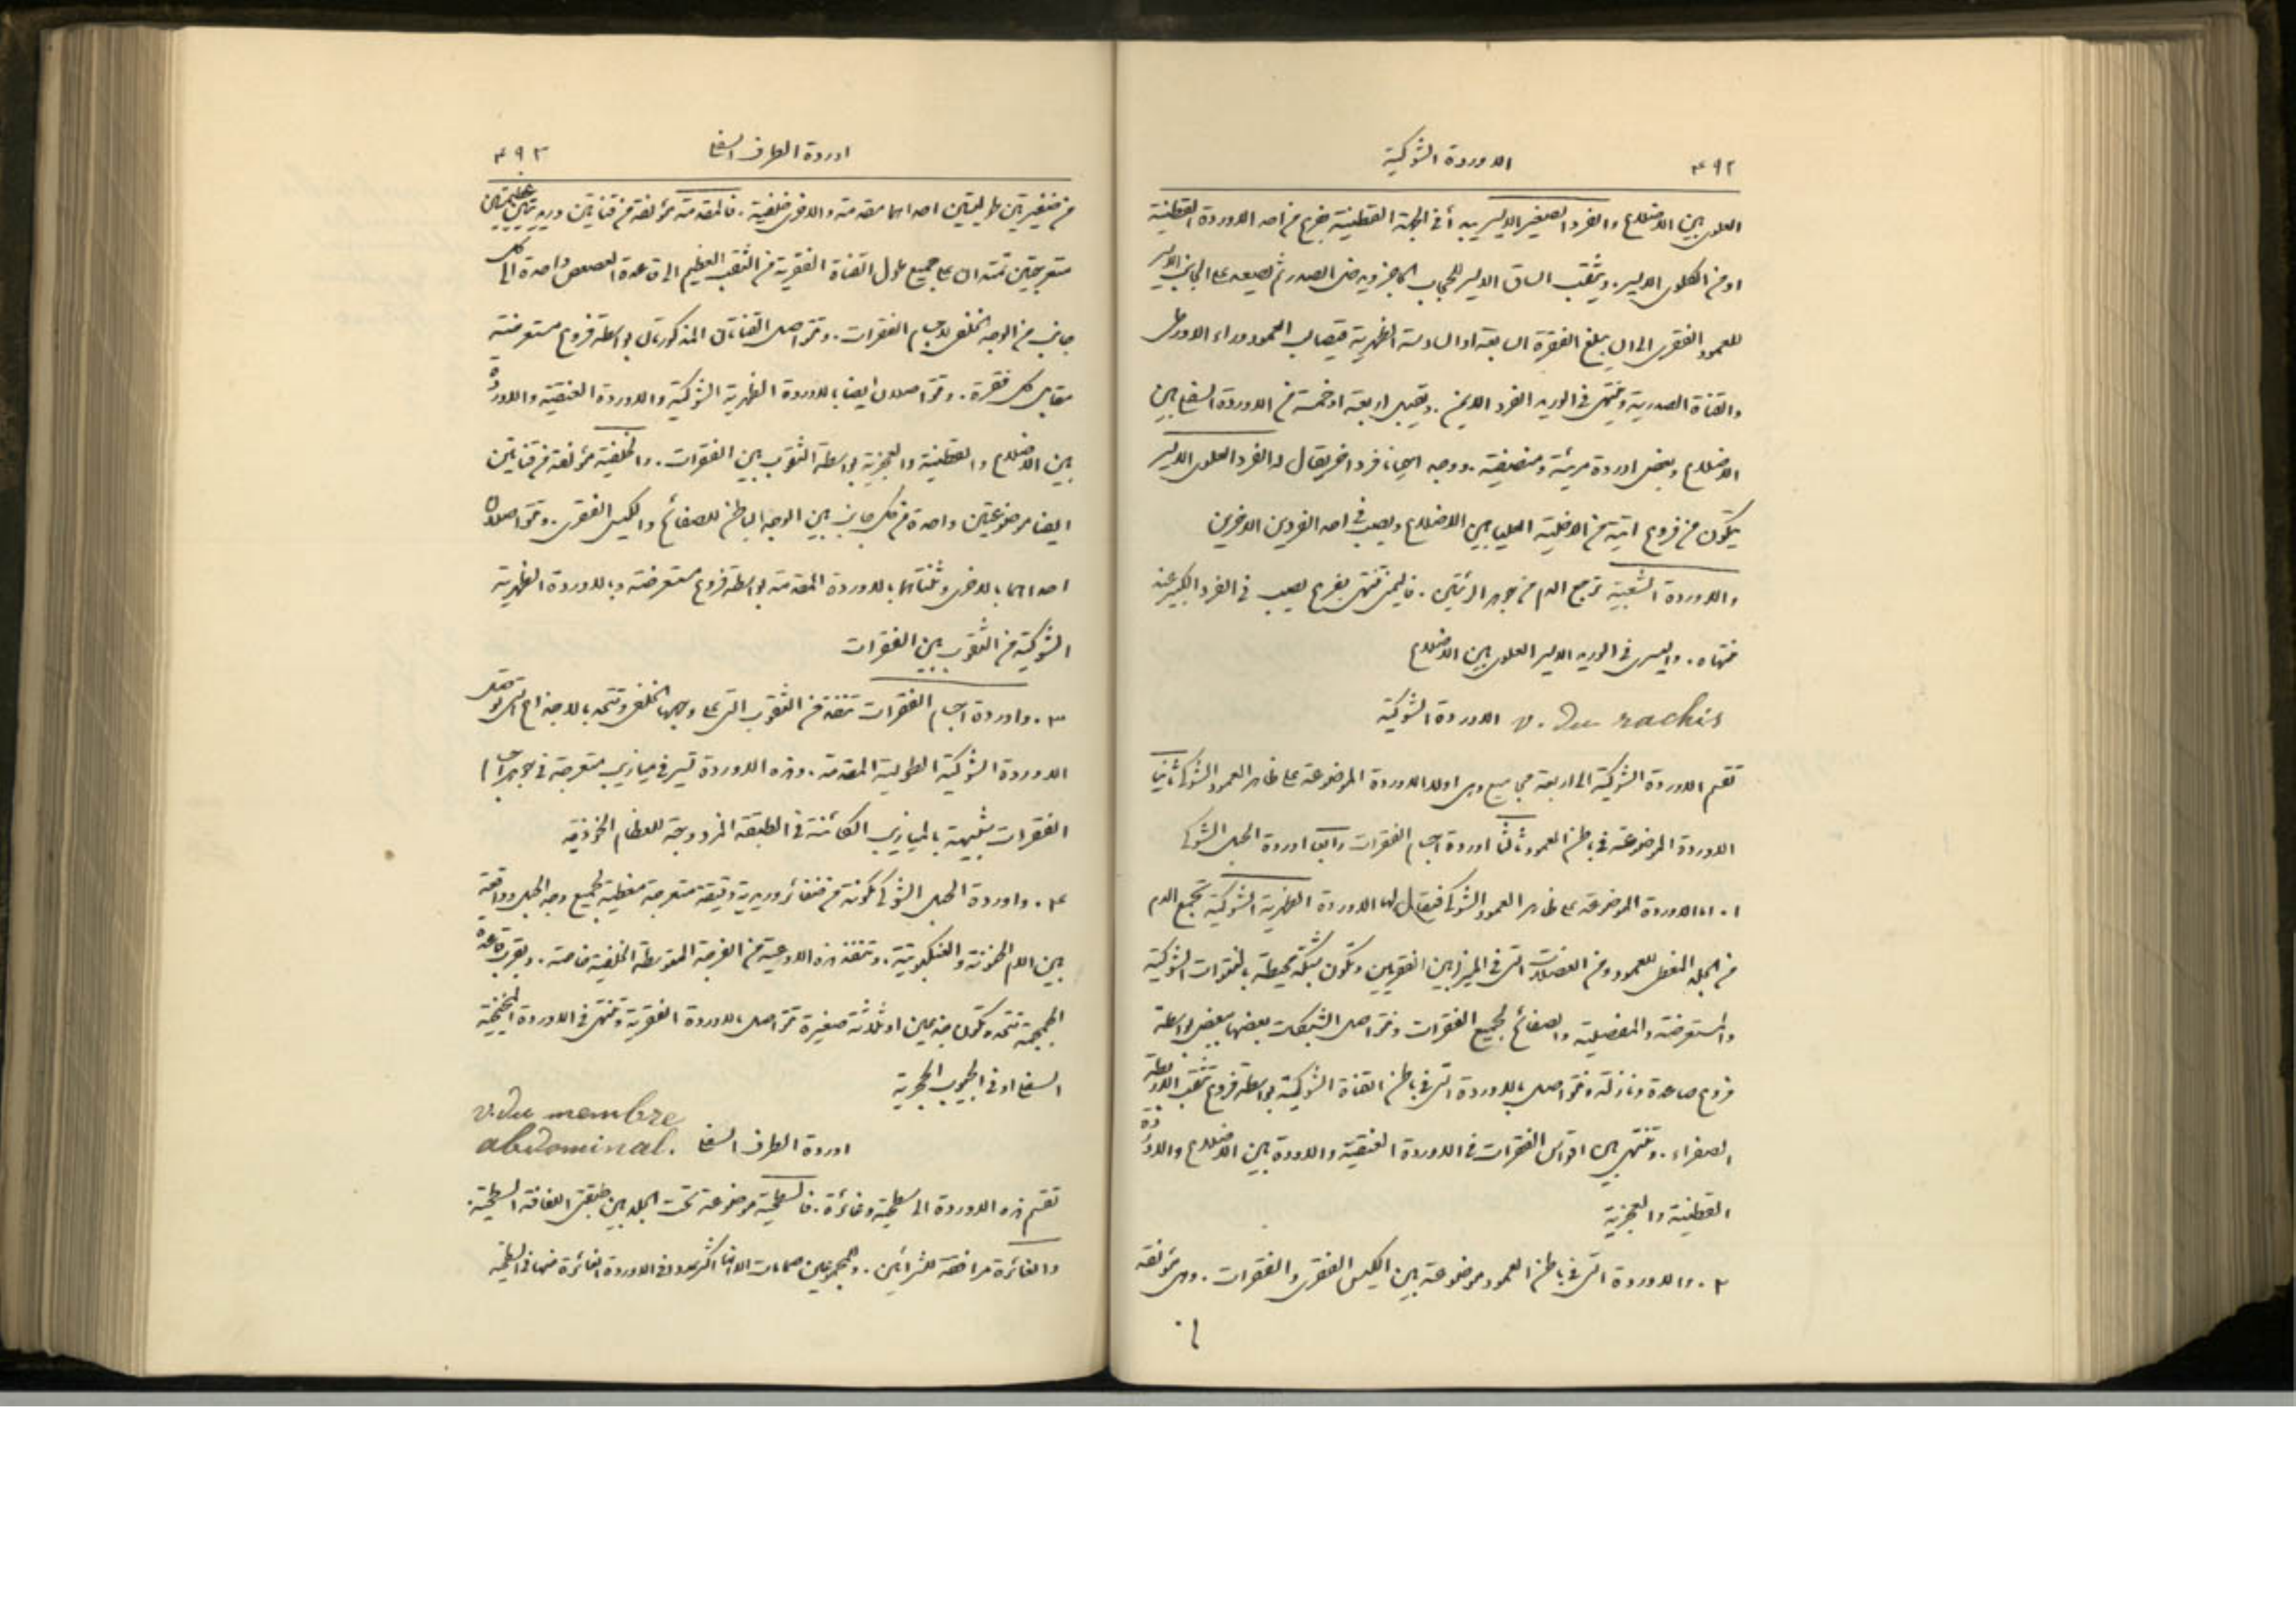 ٤٩٢ الاوردة الشوكية
العلوي بين الاضلاع والفرد الصغير الايسر يبدأ في الجهة القطنية بفرع من احد الاوردة القطنية
او من الكلوي الايسر. ويثقب الساق الايسر للحجاب الحاجز ويدخل الصدر ثم يصعد على الجانب الايسر
للعمود الفقري الى ان يبلغ الفقرة السابعة او السادسة الظهرية فيصالب العمود وراء الاورطى
والقناة الصدرية وينتهي في الوريد الفرد الايمن. ويقبل اربعة او خمسة من الاوردة السفلى بين
الاضلاع وبعض اوردة مريئة ومنصفية. ويوجد احيانا فرد اخر يقال له الفرد العلوي الايسر
يتكون من فروع اتية من الاخلية العليا بين الاضلاع ويصب في احد الفردين الاخرين
والاوردة الشعبية ترجع الدم من جوهر الرئتين. فاليمنى تنتهي بفرع يصب في الفرد الكبير عند
منتهاه. واليسرى في الوريد الايسر العلوي بين الاضلاع
الاوردة الشوكية v. du rachis
تقسم الاوردة الشوكية الى اربعة مجاميع وهي اولا الاوردة الموضوعة على ظاهر العمود الشوكي ثانيا
الاوردة الموضوعة في باطن العمود ثالثا اوردة اجسام الفقرات رابعا اوردة الحبل الشوكي
١. اما الاوردة الموضوعة على ظاهر العمود الشوكي فيقال لها الاوردة الظهرية الشوكية تجمع الدم
من الجلد المغطي للعمود ومن العضلات التي في الميزابين الفقريين وتكون شبكة محيطة بالنتوات الشوكية
والمستعرضة والمفصلية والصفائح لجميع الفقرات وتتواصل الشبكات بعضها ببعض بواسطة
فروع صاعدة ونازلة وتتواصل بالاوردة التي في باطن القناة الشوكية بواسطة فروع تثقب الاربطة
الصفراء. وتنتهي بين اقواس الفقرات في الاوردة العنقية والاوردة بين الاضلاع والاوردة
القطنية والعجزية
٢. والاوردة التي في باطن العمود موضوعة بين الكيس الفقري والفقرات. وهي مؤلفة
٤٩٣ اوردة الطرف السفلي
من ضفيرتين طوليتين احداهما مقدمة والاخرى خلفية. فالمقدمة مؤلفة من قناتين وريديتين عظيمتين
متعرجتين تمتدان على جميع طول القناة الفقرية من الثقب العظيم الى قاعدة العصعص واحدة الى كل
جانب من الوجه الخلفي لاجسام الفقرات. وتتواصل القناتان المذكورتان بواسطة فروع مستعرضة
مقابل كل فقرة. وتتواصلان ايضا بالاوردة الظهرية الشوكية والاوردة العنقية والاوردة
بين الاضلاع والقطنية والعجزية بواسطة الثقوب بين الفقرات. والخلفية مؤلفة من قناتين
ايضا موضوعتين واحدة من كل جانب بين الوجه الباطن للصفائح والكيس الفقري. وتتواصلان
احداهما بالاخرى وكلتاهما بالاوردة المقدمة بواسطة فروع مستعرضة وبالاوردة الظهرية
الشوكية من الثقوب بين الفقرات
٣. واوردة اجسام الفقرات تنفذ من الثقوب التي على وجهها الخلفي وتتحد بالاجزاء التي توصل
الاوردة الشوكية الطولية المقدمة. وهذه الاوردة تسير في ميازيب متعرجة في جوهر اجسام
الفقرات شبيهة بالميازيب الكائنة في الطبقة المزدوجة للعظام القحفية
٤. واوردة الحبل الشوكي مكونة من ضفائر وريدية دقيقة متعرجة مغطية لجميع وجه الحبل وواقعة
بين الام الحنونة والعنكبوتية. وتنفذ هذه الاوعية من الفرجة المتوسطة الخلفية خاصة. وبقرب قاعدة
الجمجمة تتحد وتكون جذعين او ثلاثة صغيرة تتواصل بالاوردة الفقرية وتنتهي في الاوردة المخيخية
السفلى او في الجيوب الحجرية
اوردة الطرف السفلي v. du membre abdominal.
تقسم هذه الاوردة الى سطحية وغائرة. فالسطحية موضوعة تحت الجلد بين طبقتي اللفافة السطحية.
والغائرة مرافقة للشرايين. وللمجموعين صمامات الا انها اكثر عددا في الاوردة الغائرة منها في السطحية